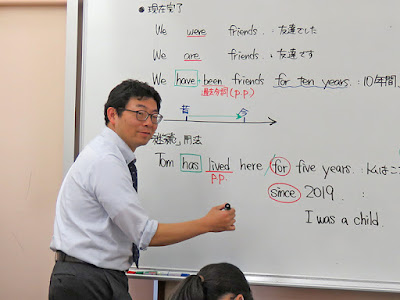 ● 現在完了
We were friends. : 友達でした
We are friends. : 友達です
We have been friends for ten years. : 10年間、
過去分詞(p.p.)
昔 今
「継続」用法
Tom has lived here for five years. : トムはここ
p.p.
since 2019. :
I was a child.